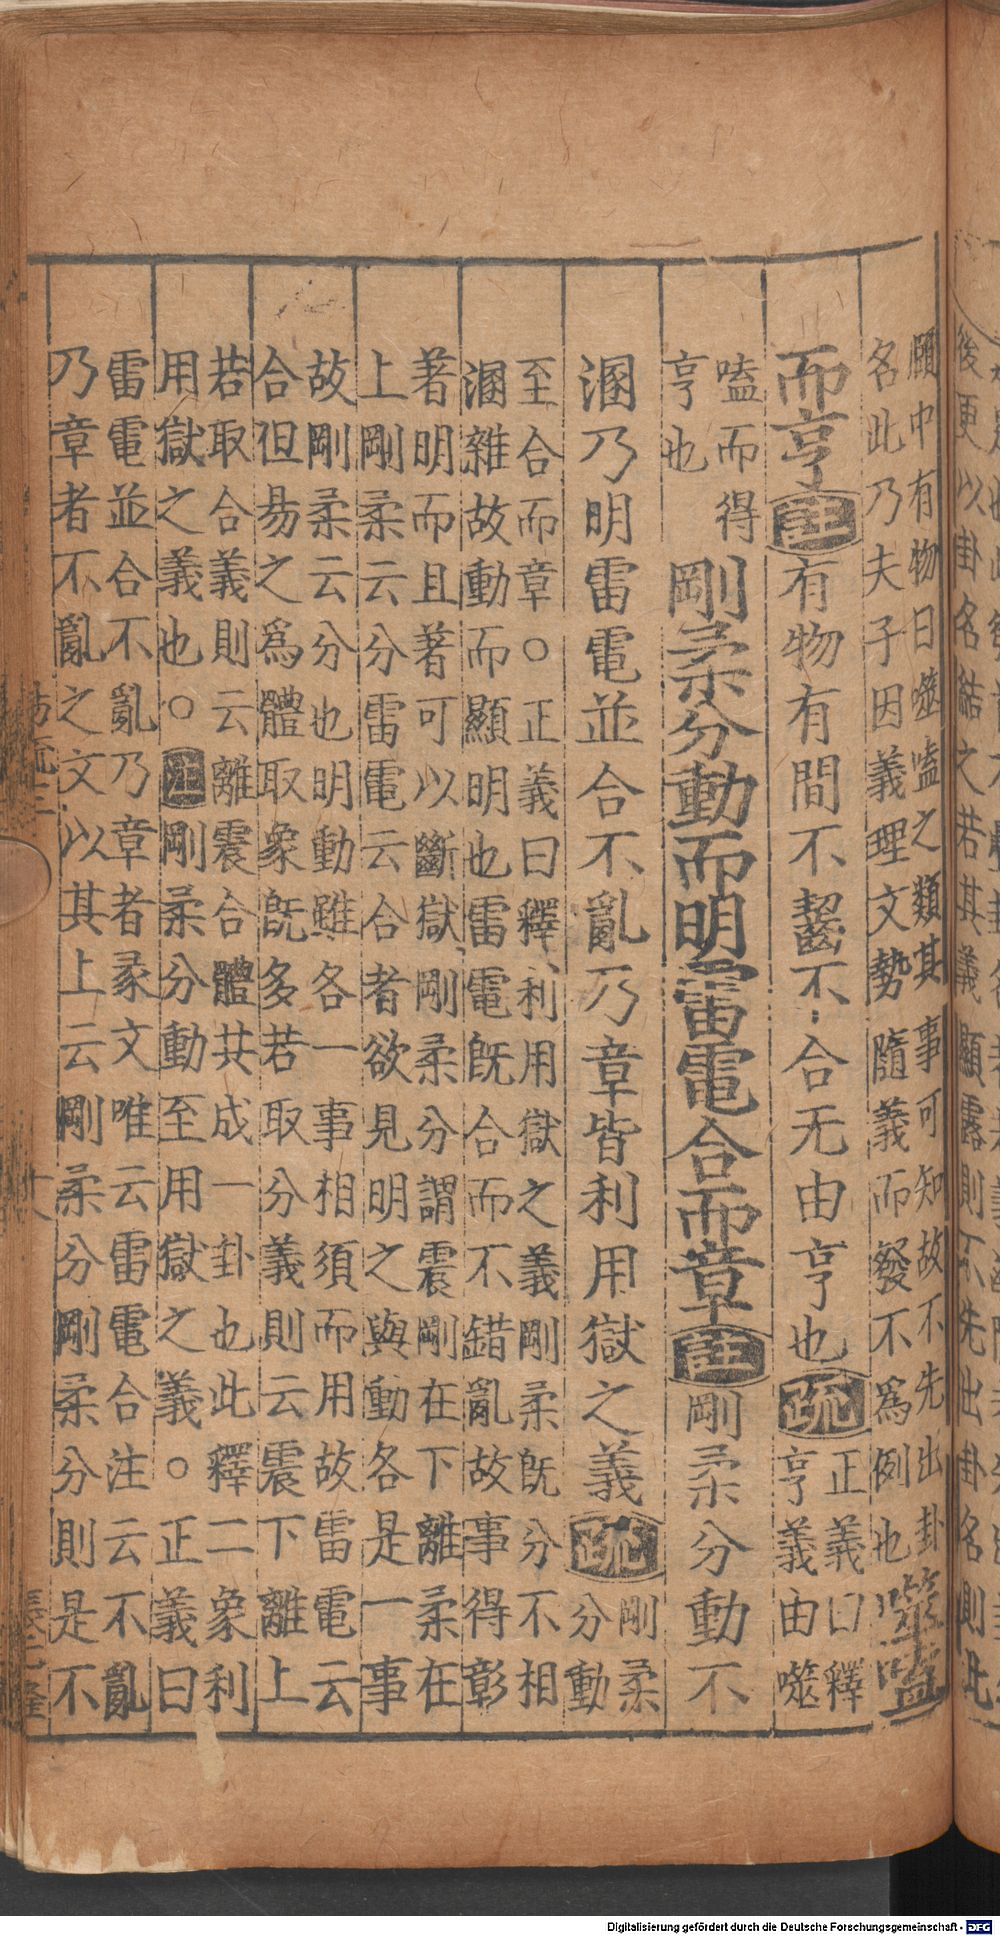 頤中有物曰噬嗑之類其事可知故不先出卦
名此乃夫子因義理文勢隨義而發不爲例也
噬嗑
而亨註有物有間不齧不合无由亨也疏
正義曰釋
亨義由噬
嗑而得
亨也
剛柔分動而明雷電合而章註剛柔分動不
溷乃明雷電並合不亂乃章皆利用獄之義疏
剛柔
分動
至合而章○正義曰釋利用獄之義剛柔旣分不相
溷雜故動而顯明也雷電旣合而不錯亂故事得彰
著明而且著可以斷獄剛柔分謂震剛在下離柔在
上剛柔云分雷電云合者欲見明之與動各是一事
故剛柔云分也明動雖各一事相須而用故雷電云
合但易之爲體取象旣多若取分義則云震下離上
若取合義則云離震合體共成一卦也此釋二象利
用獄之義也○注剛柔分動至用獄之義○正義曰
雷電並合不亂乃章者彖文唯云雷電合注云不亂
乃章者不亂之文以其上云剛柔分剛柔分則是不
Digitalisierung gefördert durch die Deutsche Forschungsgemeinschaft - DFG